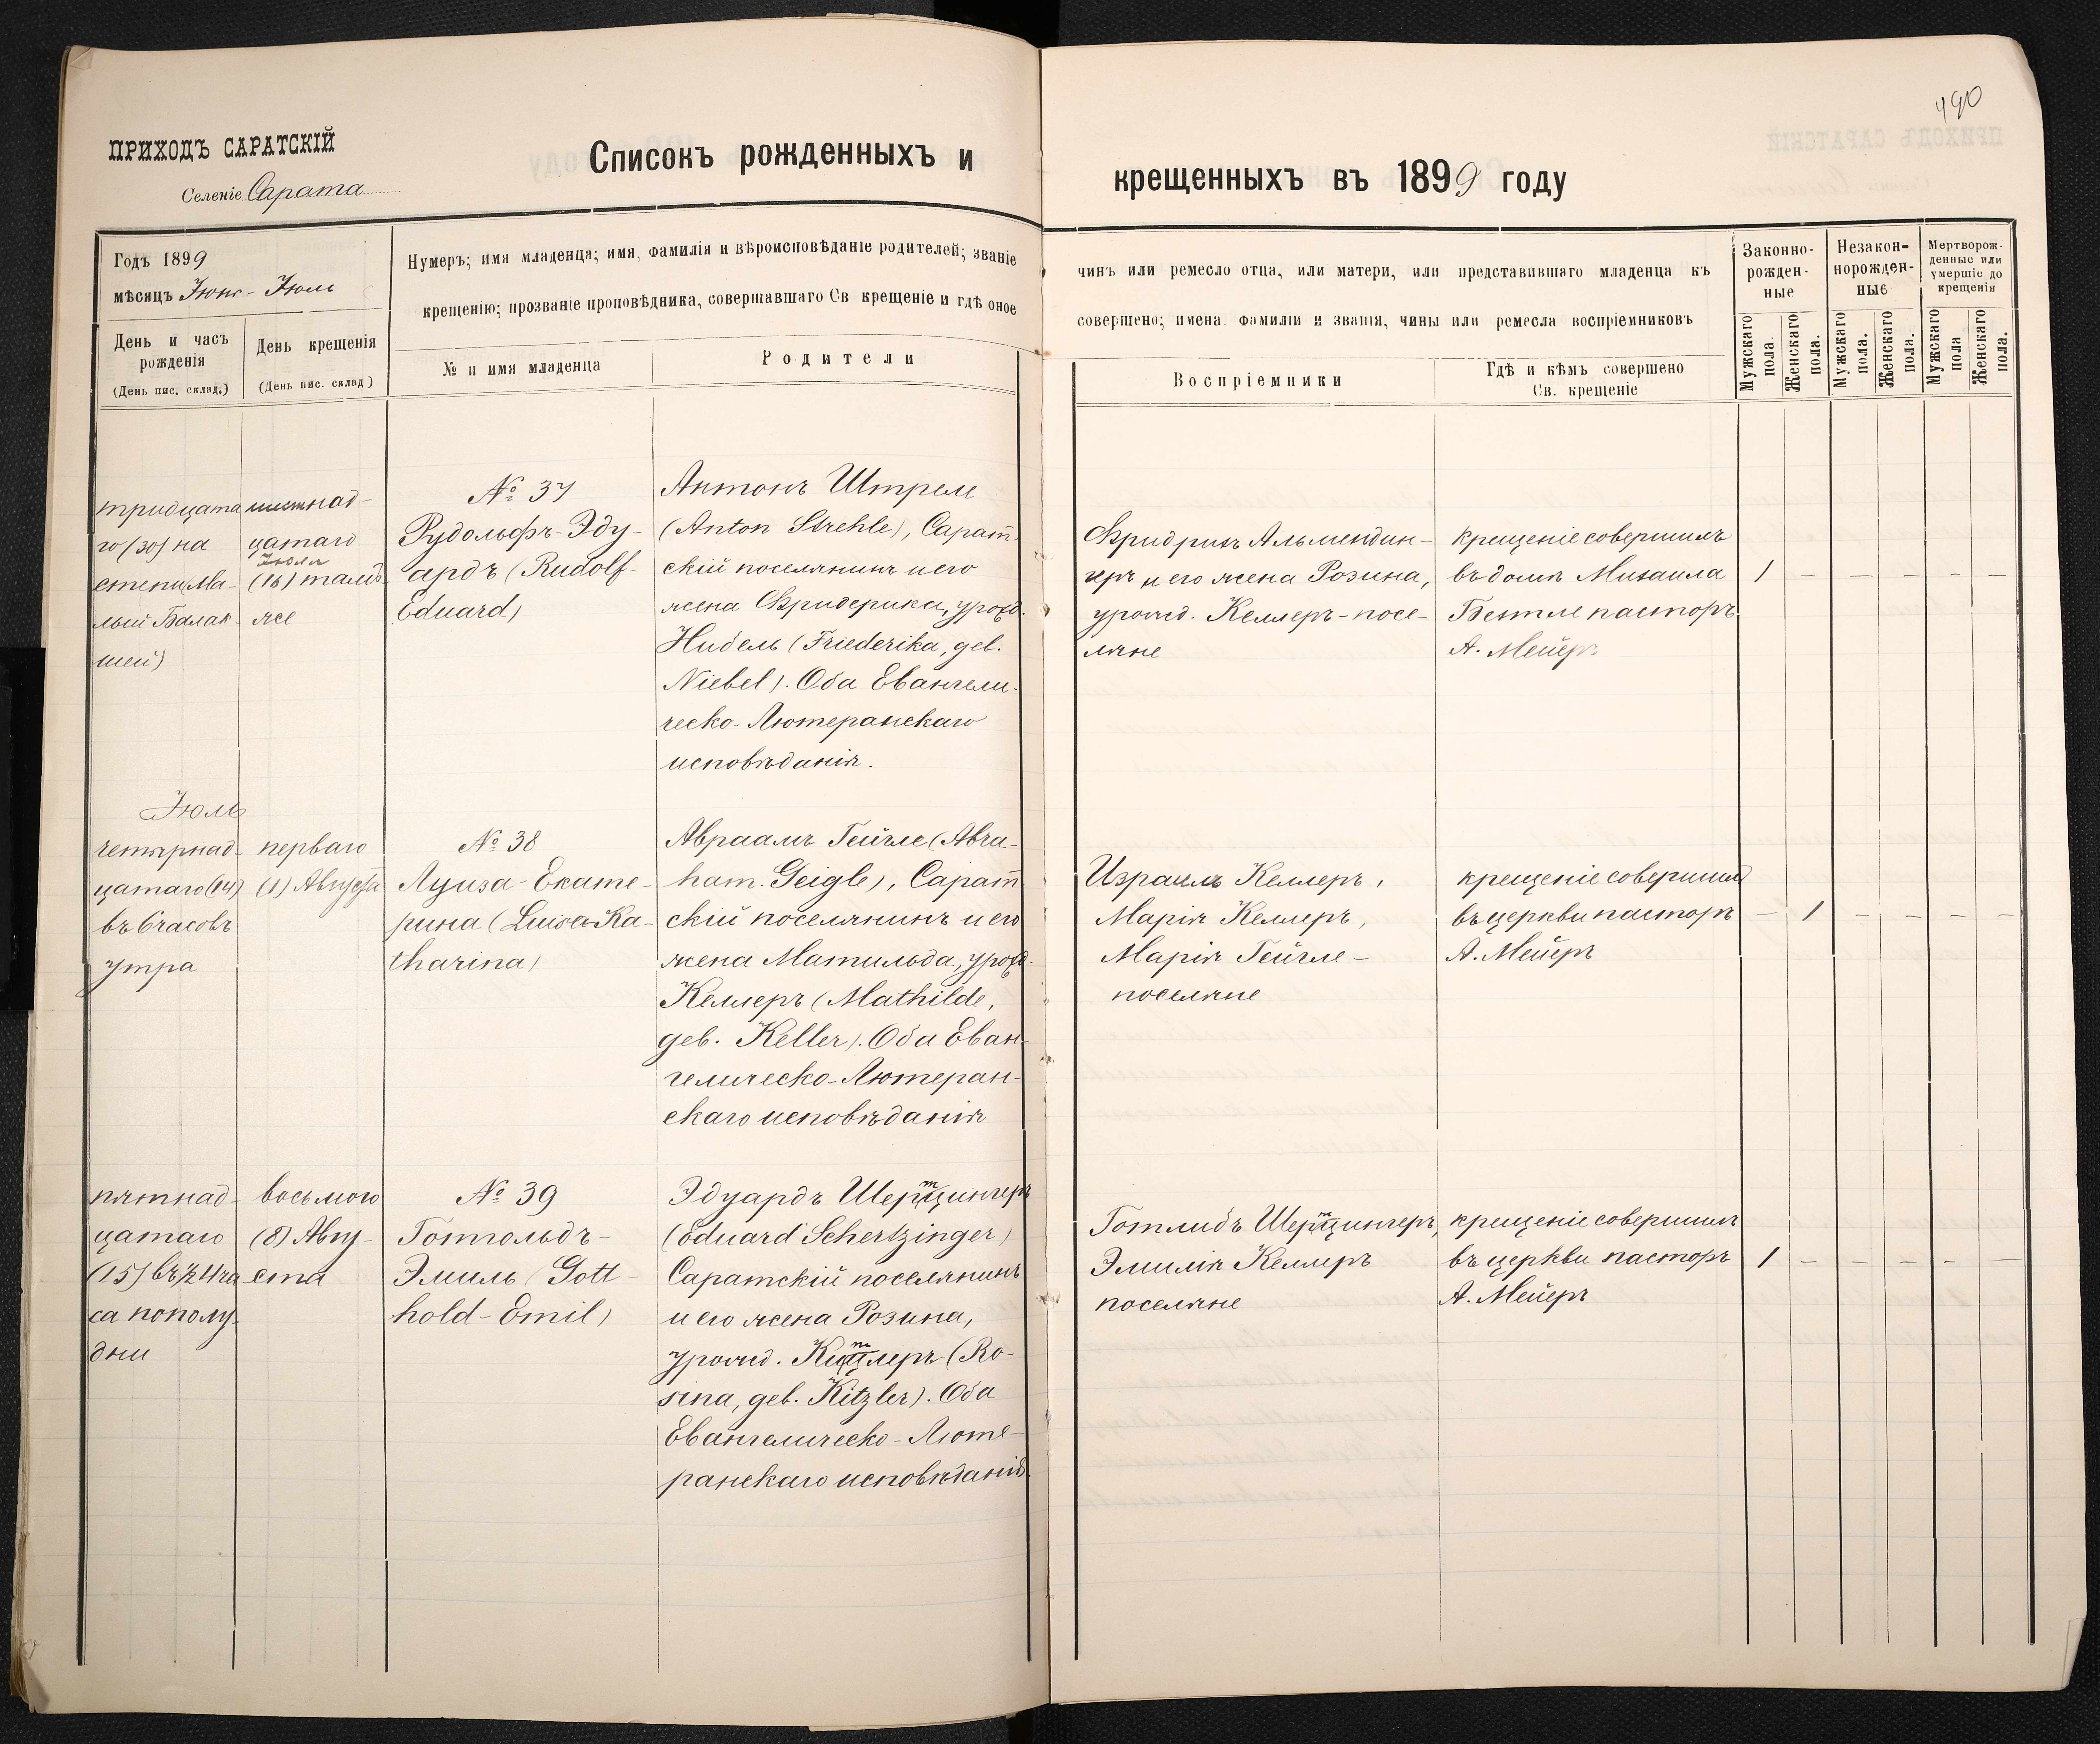 490
ПРИХОДЪ САРАТСКІЙ
Селеніе Сарата
Списокъ рожденныхъ и
крещенныхъ въ 1899 году
Годъ 1899
мѣсяцъ Іюнь - Іюль
День и часъ
рожденія
(День пис. склад.)
День крещенія
(День пис. склад)
Нумеръ; имя младенца; имя, фамилія и вѣроисповѣданіе родителей; званіе
крещенію; прозваніе проповѣдника, совершавшаго Св крещеніе и гдѣ оное
№ и имя младенца
Родители
чинъ или ремесло отца, или матери, или представившаго младенца къ
совершено; имена, фамиліи и званія, чины или ремесла воспріемниковъ
Воспріемники
Гдѣ и кѣмъ совершено
Св. крещеніе
Законно-
рожден-
ные
Незакон-
норожден-
ные
Мертворож-
денные или
умершіе до
крещенія
Мужскаго
пола.
Женскаго
пола.
Мужскаго
пола.
Женскаго
пола.
Мужскаго
пола
Женскаго
пола.
тридцата
го (30) на
степи Ма-
лый Балак-
чей)
шестнад-
цатаго
Іюля
(16) тамъ-
же
№ 37
Рудольфъ-Эду-
ардъ (Rudolf-
Eduard)
Антонъ Штреле
(Anton Strehle), Сарат-
скій поселянинъ и его
жена Фридерика, урожд.
Нибель (Friederika, geb.
Niebel). Оба Евангели-
ческо-Лютеранскаго
исповѣданія.
Фридрихъ Альмендин-
геръ и его жена Розина,
урожд. Келлеръ - посе-
ляне
крещеніе совершилъ
въ домѣ Михаила
Бейтле пасторъ
А. Мейеръ
1 – – – – –
Іюль
четырнад-
цатаго (14)
въ 6 часовъ
утра
перваго
(1) Августа
№ 38
Луиза-Екате-
рина (Luise-Ka-
tharina)
Авраамъ Гейгле (Abra-
ham Geigle), Сарат-
скій поселянинъ и его
жена Матильда, урожд.
Келлеръ (Mathilde,
geb. Keller). Оба Еван-
гелическо-Лютеран-
скаго исповѣданія
Израиль Келлеръ,
Марія Келлеръ,
Марія Гейгле -
поселяне
крещеніе совершилъ
въ церкви пасторъ
А. Мейеръ
– 1 – – – –
пятнад-
цатаго
(15) въ ½ 4 ча
са пополу-
дни
восьмого
(8) Авгу-
ста
№ 39
Готгольдъ-
Эмиль (Gott-
hold-Emil)
Эдуардъ Шертцингеръ
(Eduard Schertzinger)
Саратскій поселянинъ
и его жена Розина,
урожд. Китцлеръ (Ro-
sina, geb. Kitzler). Оба
Евангелическо-Люте-
ранскаго исповѣданія
Готлибъ Шертцингеръ,
Эмилія Келлеръ
поселяне
крещеніе совершилъ
въ церкви пасторъ
А. Мейеръ
1 – – – – –